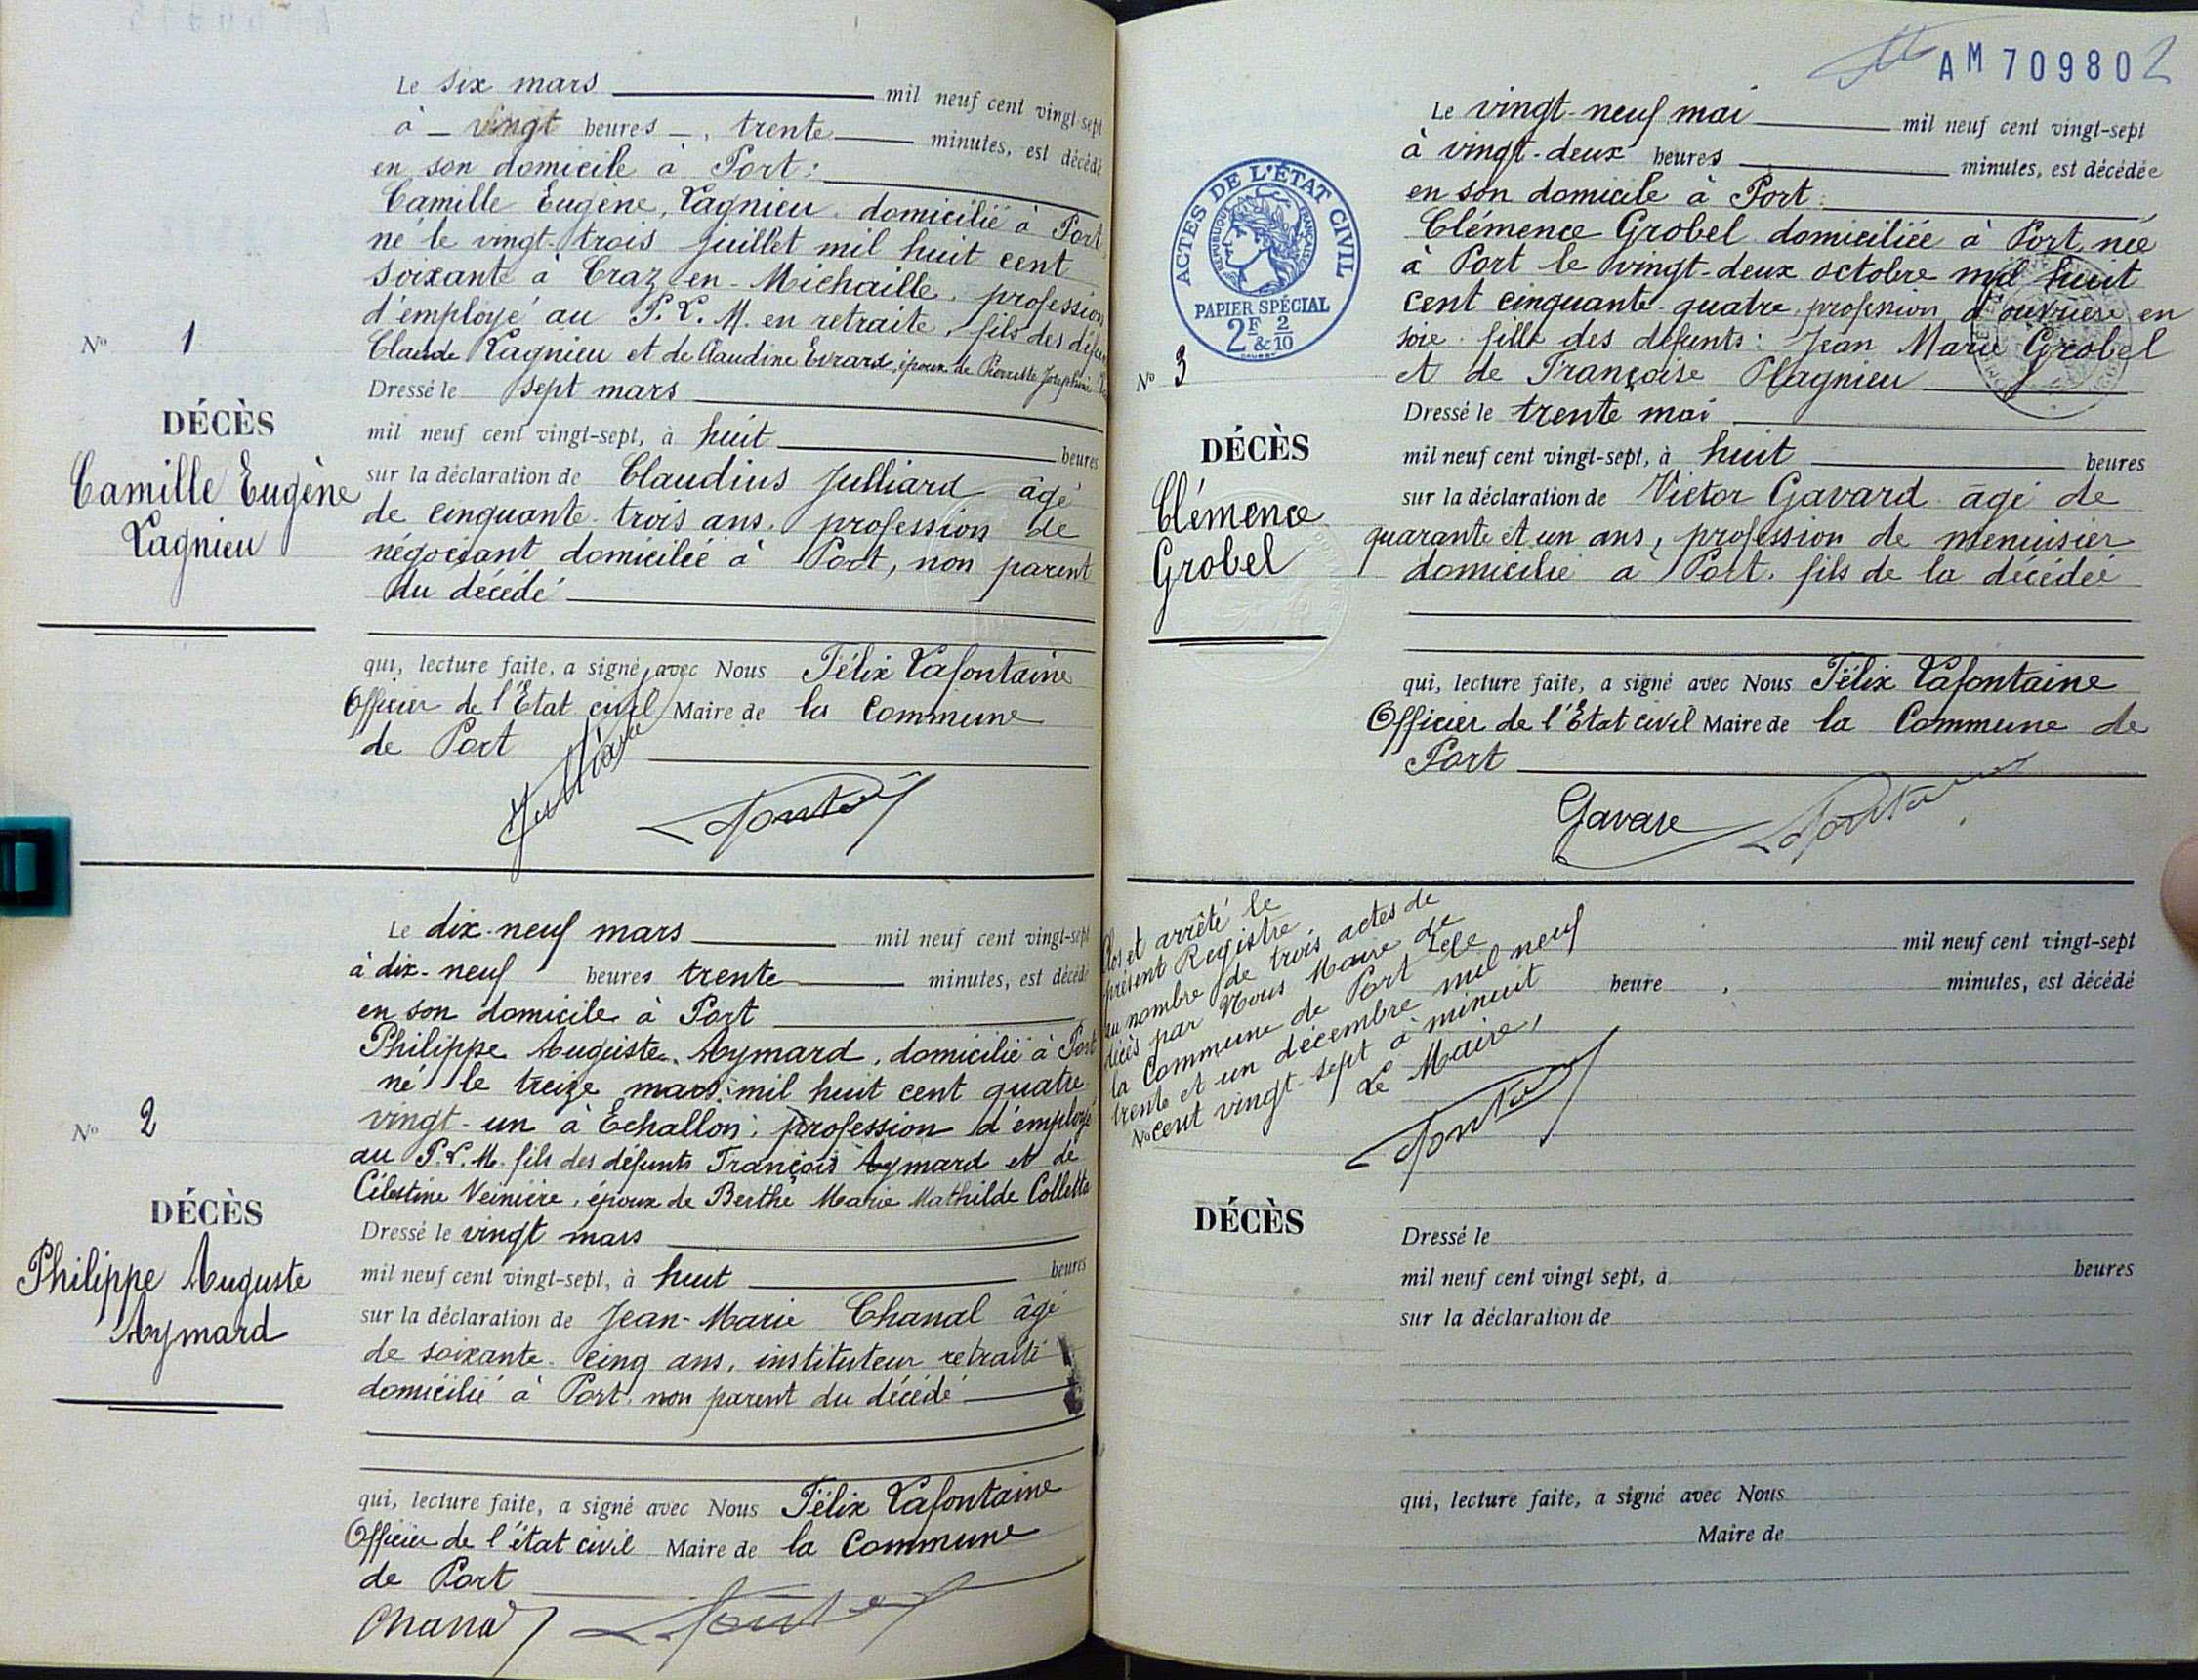 Le six mars mil neuf cent vingt-sept
à vingt heures, trente minutes, est décédé
en son domicile à Port :
Camille Eugène, Lagnieu domicilié à Port
né le vingt-trois juillet mil huit cent
soixante à Craz en-Michaille, profession
d'employé au P.L.M. en retraite, fils des
Claude Lagnieu et de Claudine Evrard, époux de Joséphine
N° 1
DÉCÈS
Camille Eugène
Lagnieu
Dressé le sept mars
mil neuf cent vingt-sept, à huit heures
sur la déclaration de Claudius Julliard âgé
de cinquante-trois ans, profession de
négociant domicilié à Port, non parent
du décédé
qui, lecture faite, a signé avec Nous Félix Lafontaine
Officier de l'Etat civil Maire de la Commune
de Port
Julliard
Le dix-neuf mars mil neuf cent vingt-sept
à dix-neuf heures trente minutes, est décédé
en son domicile à Port
Philippe Auguste Aymard, domicilié à Port
né le treize mars mil huit cent quatre
vingt-un à Echallon, profession d'employé
au P.L.M. fils des défunts François Aymard et de
Célestine Veinière, époux de Berthe Marie Mathilde Colletta
N° 2
DÉCÈS
Philippe Auguste
Aymard
Dressé le vingt mars
mil neuf cent vingt-sept, à huit heures
sur la déclaration de Jean-Marie Chanal âgé
de soixante-cinq ans, instituteur retraité
domicilié à Port, non parent du décédé
qui, lecture faite, a signé avec Nous Félix Lafontaine
Officier de l'état civil Maire de la Commune
de Port
Chanal
AM 70980 2
ACTES DE L'ÉTAT CIVIL
RÉPUBLIQUE FRANÇAISE
PAPIER SPÉCIAL
2F & 2/10
Le vingt-neuf mai mil neuf cent vingt-sept
à vingt-deux heures minutes, est décédée
en son domicile à Port :
Clémence Grobel domiciliée à Port, née
à Port le vingt-deux octobre mil huit
cent cinquante-quatre, profession d'ouvrière en
soie. fille des défunts : Jean Marie Grobel
et de Françoise Plagnieu
N° 3
DÉCÈS
Clémence
Grobel
Dressé le trente mai
mil neuf cent vingt-sept, à huit heures
sur la déclaration de Victor Gavard âgé de
quarante et un ans, profession de menuisier
domicilié à Port. fils de la décédée
qui, lecture faite, a signé avec Nous Félix Lafontaine
Officier de l'Etat civil Maire de la Commune de
Port
Gavard
Clos et arrêté le
présent Registre
au nombre de trois actes de
décès par Nous Maire de
la Commune de Port le
trente et un décembre mil neuf
cent vingt-sept à minuit
Le Maire,
N°
mil neuf cent vingt-sept
heure , minutes, est décédé
DÉCÈS
Dressé le
mil neuf cent vingt sept, à heures
sur la déclaration de
qui, lecture faite, a signé avec Nous
Maire de